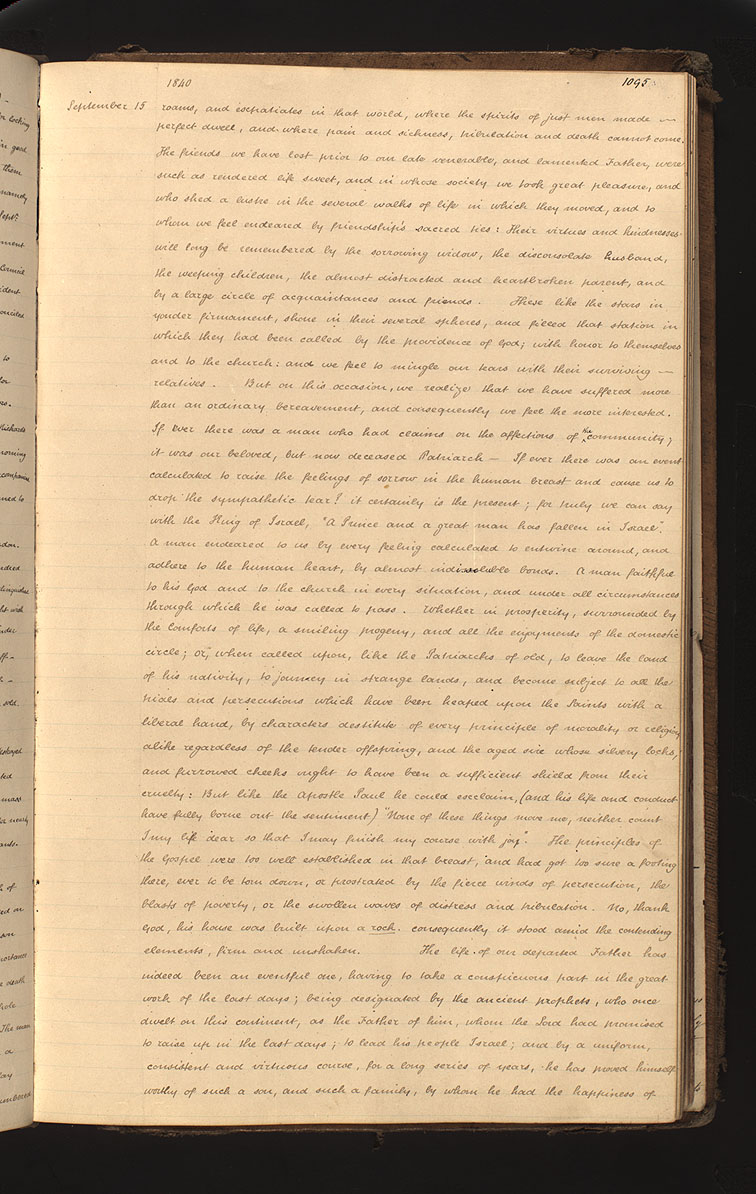 1840
1095
September 15 roams, and expatiates in that world, where the spirits of just men made —
perfect dwell, and where pain and sickness, tribulation and death cannot come.
The friends we have lost prior to our late venerable, and lamented Father, were
such as rendered life sweet, and in whose society we took great pleasure, and
who shed a lustre in the several walks of life in which they moved, and to
whom we feel endeared by friendship's sacred ties: Their virtues and kindnesses
will long be remembered by the sorrowing widow, the disconsolate husband,
the weeping children, the almost distracted and heartbroken parent, and
by a large circle of acquaintances and friends. These like the stars in
yonder firmament, shone in their several spheres, and filled that station in
which they had been called by the providence of God; with honor to themselves
and to the church: and we feel to mingle our tears with their surviving —
relatives. But on this occasion, we realize that we have suffered more
than an ordinary bereavement, and consequently we feel the more interested.
If ever there was a man who had claims on the affections of the community,
it was our beloved, but now deceased Patriarch — If ever there was an event
calculated to raise the feelings of sorrow in the human breast and cause us to
drop the sympathetic tear! it certainly is the present; for truly we can say
with the King of Israel, "A Prince and a great man has fallen in Israel".
A man endeared to us by every feeling calculated to entwine around, and
adhere to the human heart, by almost indissoluble bonds. A man faithful
to his God and to the church in every situation, and under all circumstances
through which he was called to pass. Whether in prosperity, surrounded by
the comforts of life, a smiling progeny, and all the enjoyments of the domestic
circle; or, when called upon, like the Patriarchs of old, to leave the land
of his nativity, to journey in strange lands, and become subject to all the
trials and persecutions which have been heaped upon the Saints with a
liberal hand, by characters destitute of every principle of morality or religion
alike regardless of the tender offspring, and the aged sire whose silvery locks,
and furrowed cheeks ought to have been a sufficient shield from their
cruelty: But like the Apostle Paul he could exclaim, (and his life and conduct
have fully borne out the sentiment) "None of these things move me, neither count
I my life dear so that I may finish my course with joy". The principles of
the Gospel were too well established in that breast, and had got too sure a footing
there, ever to be torn down, or prostrated by the fierce winds of persecution, the
blasts of poverty, or the swollen waves of distress and tribulation. No, thank
God, his house was built upon a rock. consequently it stood amid the contending
elements, firm and unshaken. The life of our departed Father has
indeed been an eventful one, having to take a conspicuous part in the great
work of the last days; being designated by the ancient prophets, who once
dwelt on this continent, as the Father of him, whom the Lord had promised
to raise up in the last days; to lead his people Israel; and by a uniform,
consistent and virtuous course, for a long series of years, he has proved himself
worthy of such a son, and such a family, by whom he had the happiness of